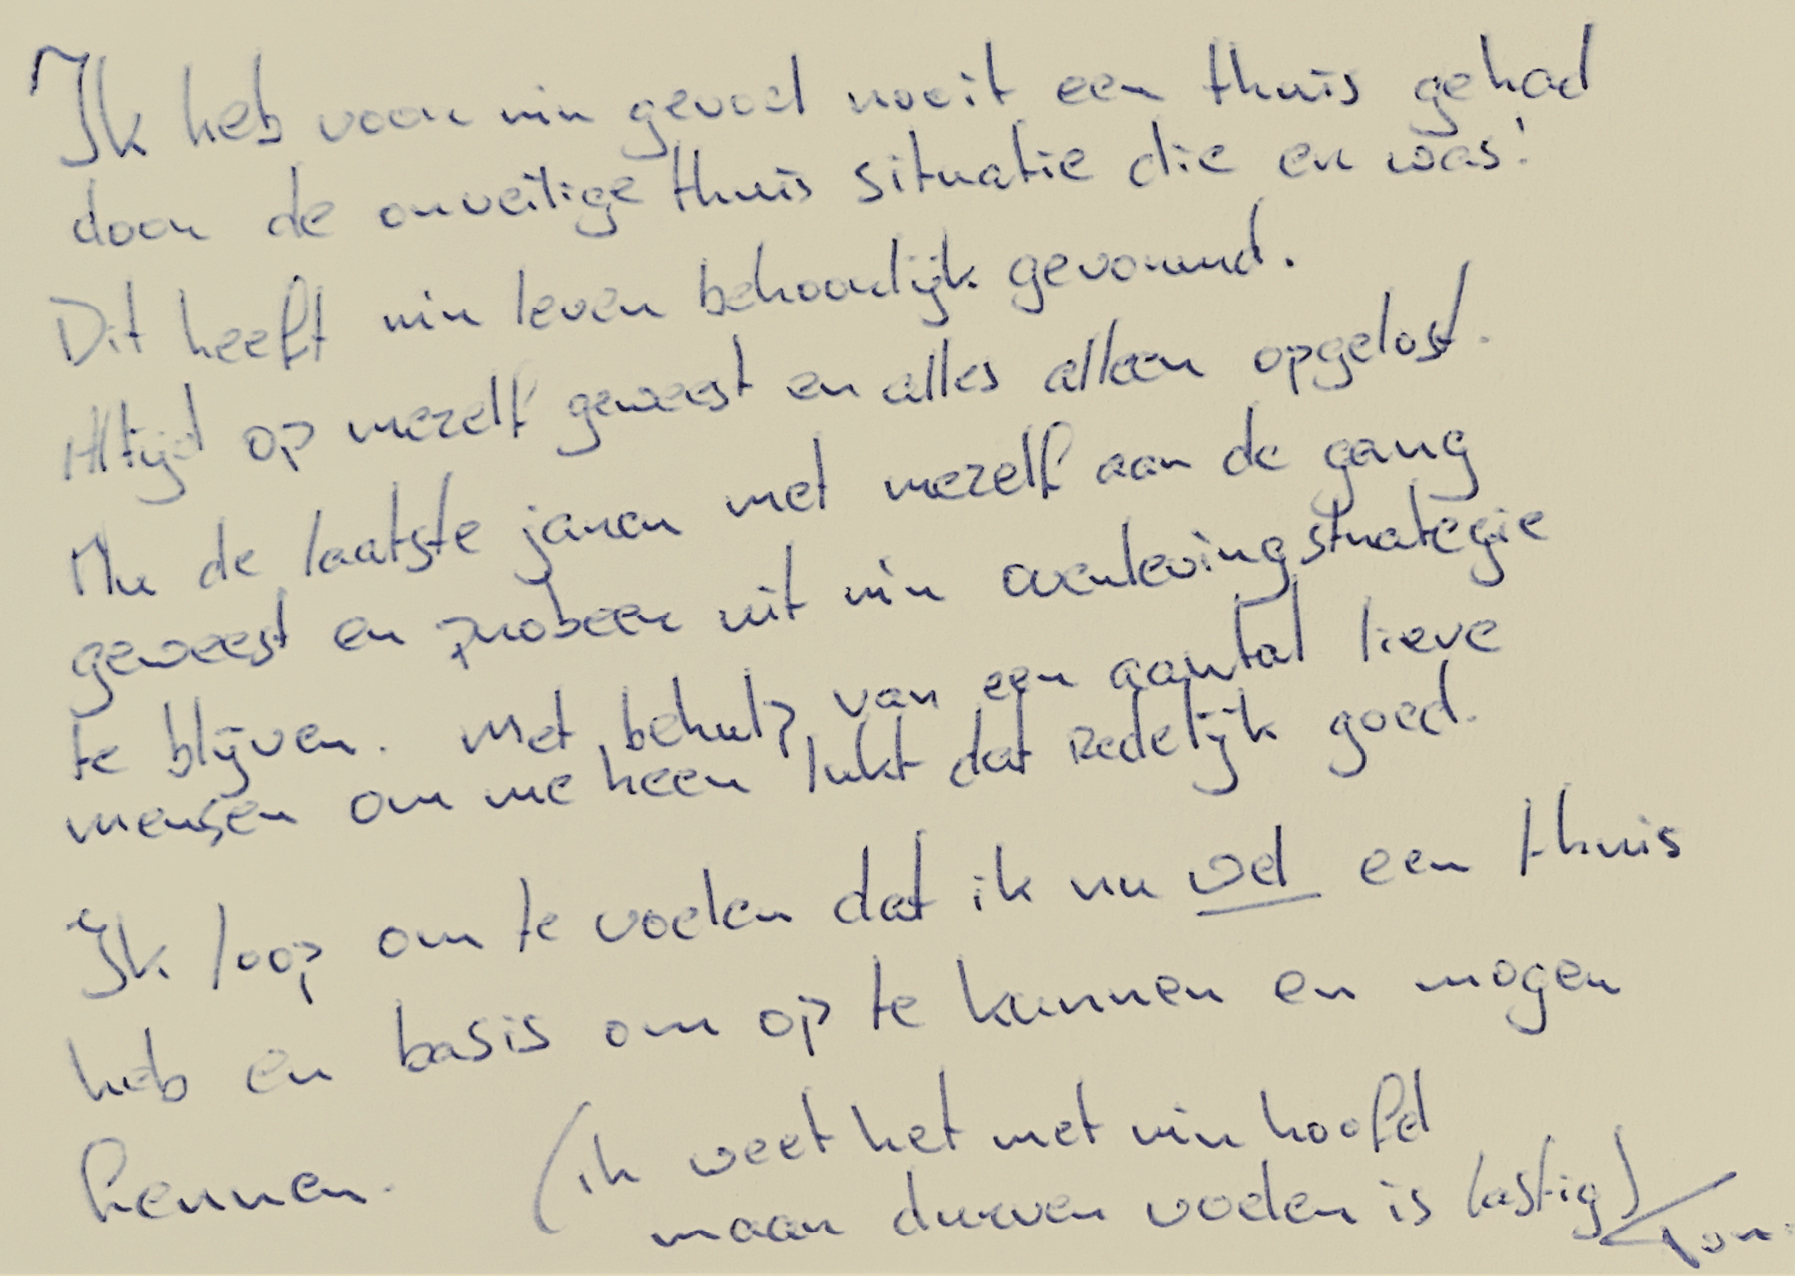 Ik heb voor min gevoel nooit een thuis gehad
door de onveilige thuis situatie die er was!
Dit heeft min leven behoorlijk gevormd.
Altijd op mezelf geweest en alles alleen opgelost.
Nu de laatste jaren met mezelf aan de gang
geweest en probeer uit min overlevingstrategie
te blijven. Met behulp van een aantal lieve
mensen om me heen lukt dat redelijk goed.
Ik loop om te voelen dat ik nu wel een thuis
heb en basis om op te kunnen en mogen
rennen. (ik weet het met min hoofd
maar durven voelen is lastig)